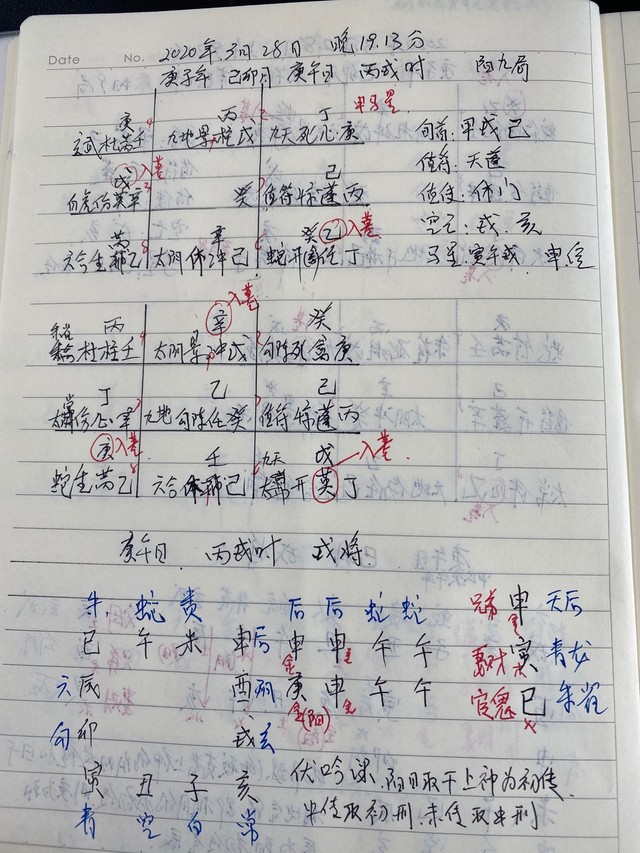 Date No. 2020年3月28日 晚19.13分
庚子年 己卯月 庚午日 丙戌时 阳九局
甲马星
庚 丙 丁
玄武杜芮壬 九地景柱戊 九天死心庚 旬首:甲戌己
戊 入墓 己 值符:天蓬
白虎伤英辛 癸 值符惊蓬丙 值使:休门
辛 癸乙 入墓 空亡:戌.亥
六合生辅乙 太阴休冲己 蛇开任丁 马星:寅午戌 申位
入墓
丙 辛 癸
杜柱壬 太阴景冲戊 勾陈死禽庚
丁 乙 己
伤心辛 九地勾陈任癸 值符惊蓬丙
庚 入墓 壬 九天 戊 入墓
蛇生芮乙 六合休辅己 开英丁
庚午日 丙戌时 戌将
朱 蛇 贵 后 后 蛇 蛇 兄弟 申 天后
金
巳 午 未 申后 申 申 午 午 妻财 寅 青龙
金 金 木
六辰 酉阴 庚 申 午 午 官鬼 巳 朱雀
金(阳) 金 火
勾卯 戌玄
寅 丑 子 亥 伏吟课,阳日取干上神为初传
青 空 白 常 中传取初刑.末传取中刑